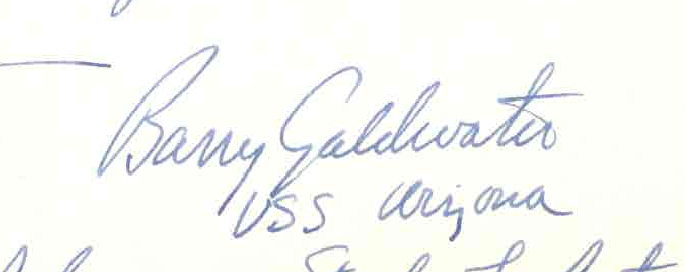 Barry Goldwater
USS Arizona